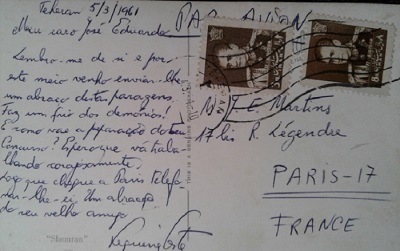 Teheran 5/3/1961
PAR AVION
Meu caro José Eduardo
Lembro-me de si e por
este meio venho enviar-lhe
um abraço destas paragens.
Faz um frio dos demónios!
E como vai a preparação do seu
Concurso? Espero que vá traba
lhando corajosamente.
Logo que chegue a Paris telefo
nar-lhe-ei. Um abraço
do seu velho amigo
"Shemran"
J. E. Martins
17 bis R. Légendre
PARIS-17
FRANCE